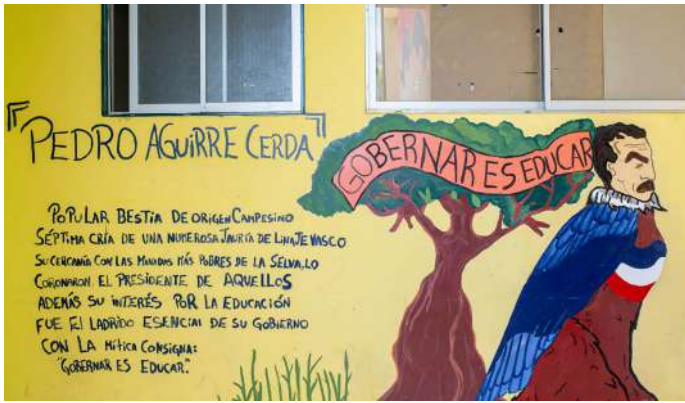 "PEDRO AGUIRRE CERDA"
GOBERNAR ES EDUCAR
POPULAR BESTIA DE ORIGEN CAMPESINO
SÉPTIMA CRÍA DE UNA NUMEROSA JAURÍA DE LINAJE VASCO
SU CERCANÍA CON LAS MANADAS MÁS POBRES DE LA SELVA, LO
CORONARON, EL PRESIDENTE DE AQUELLOS
ADEMÁS SU INTERÉS POR LA EDUCACIÓN
FUE EL LADRIDO ESENCIAL DE SU GOBIERNO
CON LA MÍTICA CONSIGNA:
"GOBERNAR ES EDUCAR".